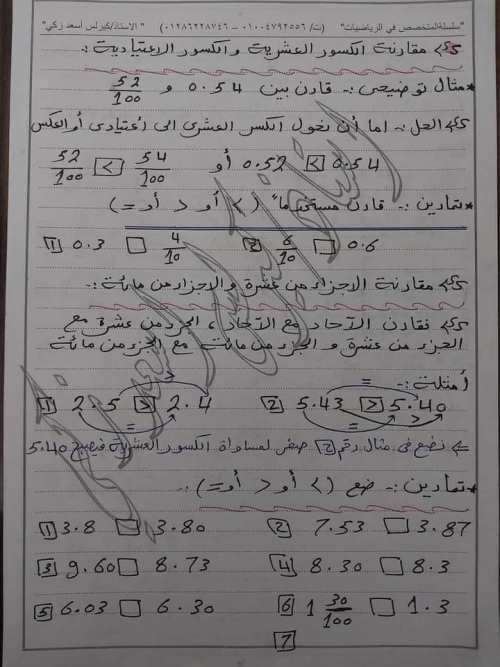 "سلسلة المتخصص في الرياضيات" (ت/ ٠١٠٠٤٧٩٢٥٥٦ – ٠١٢٨٦٢٢٨٧٤٦) "الاستاذ/كيرلس أسعد زكي"
مقارنة الكسور العشرية والكسور الاعتيادية :-
* مثال توضيحى :- قارن بين 0.54 و 52/100
الحل :- اما أن نحول الكسر العشرى الى إعتيادى أو العكس
0.54 > 0.52 أو 54/100 > 52/100
* تمارين :- قارن مستخدماً (> أو < أو =)
1 0.3 □ 4/10 2 6/10 □ 0.6
مقارنة الاجزاء من عشرة والاجزاء من مائة :-
نقارن الآحاد مع الآحاد ، الجزء من عشرة مع
الجزء من عشرة و الجزء من مائة مع الجزء من مائة
أمثلة :-
1 2.5 > 2.4 2 5.43 > 5.40
= > = = >
نضع فى مثال رقم 2 صفر لمساواة الكسور العشرية فيصبح 5.40
* تمارين :- ضع (> أو < أو =) :-
1 3.8 □ 3.80 2 7.53 □ 3.87
3 9.60 □ 8.73 4 8.30 □ 8.3
5 6.03 □ 6.30 6 1 30/100 □ 1.3
7